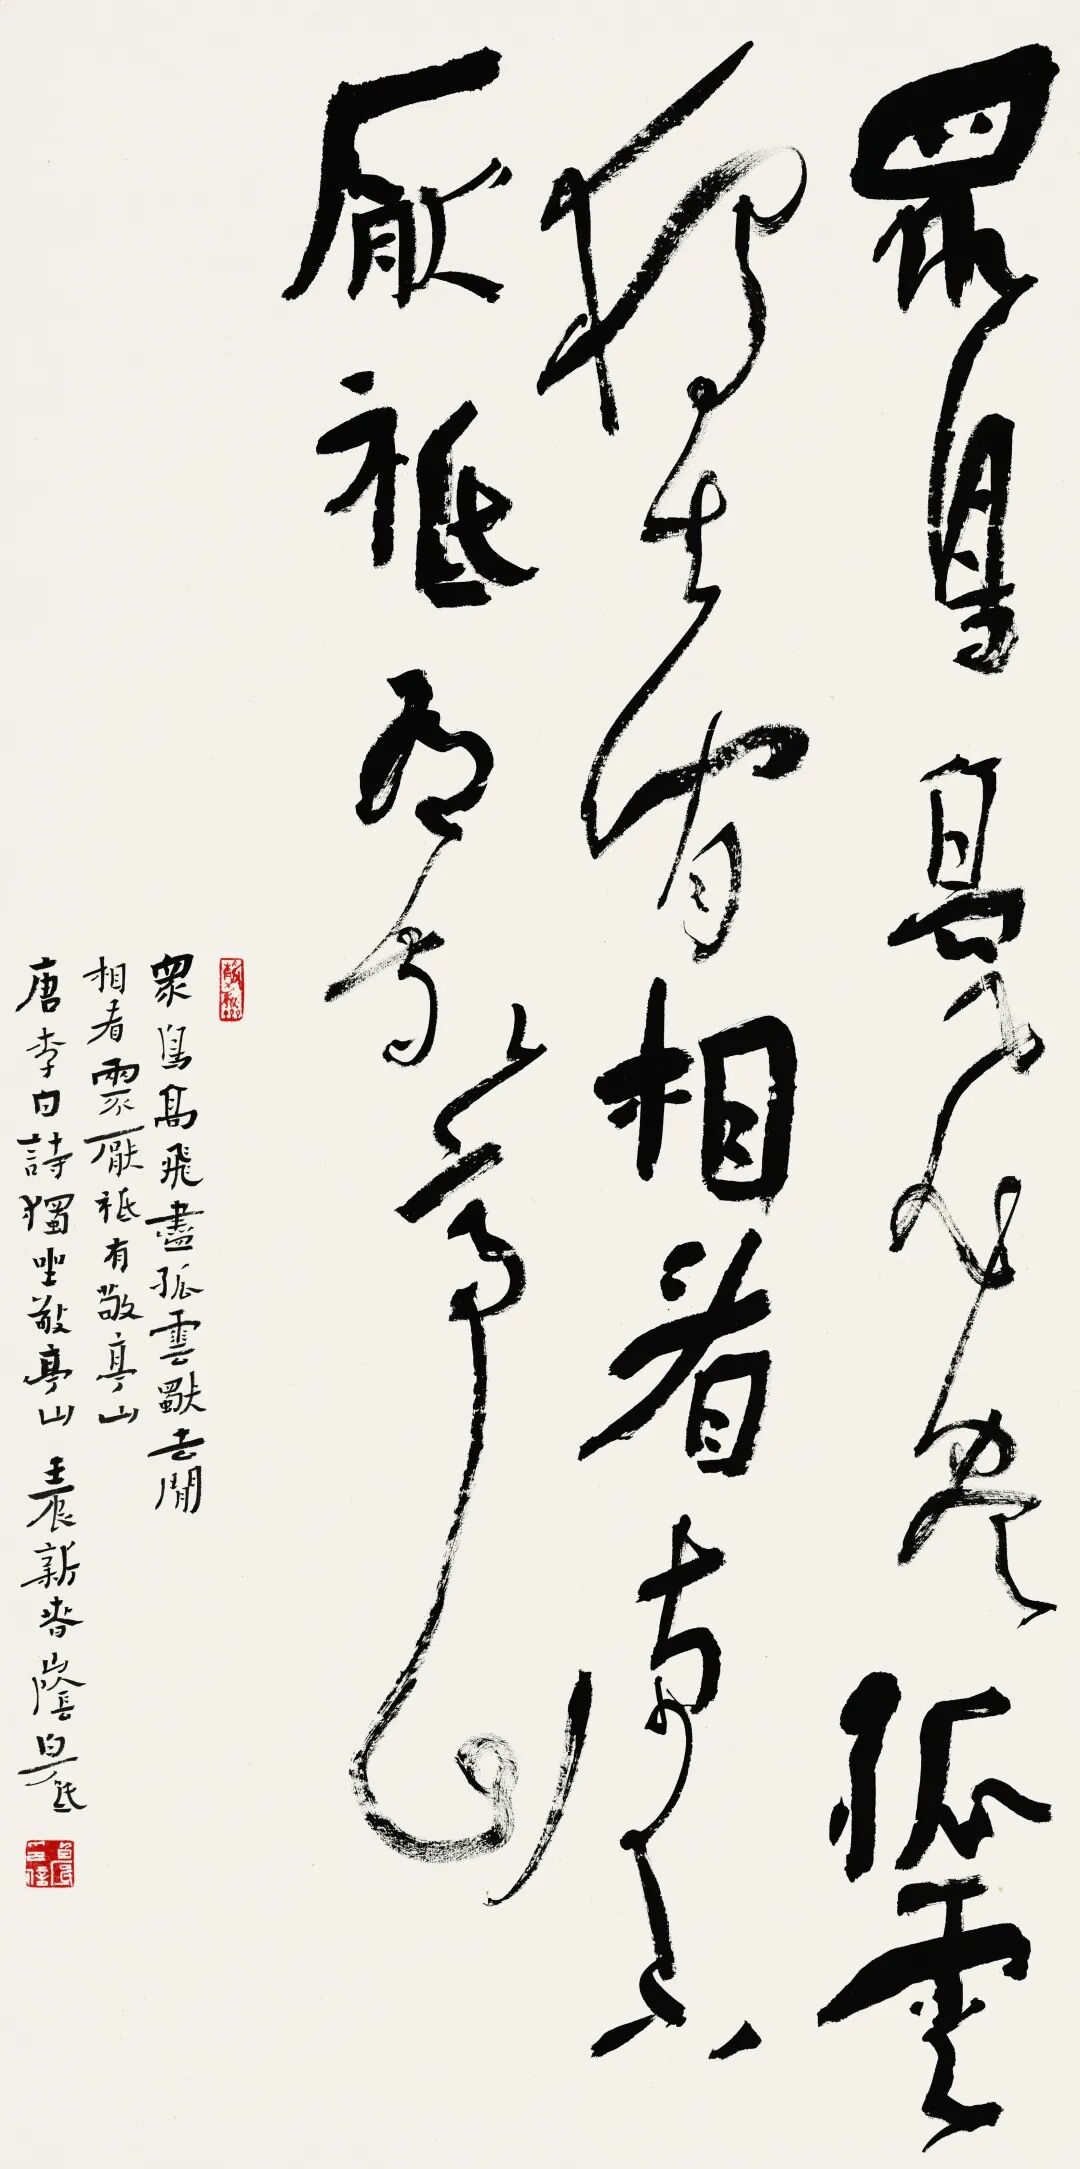 眾鳥高飛盡孤雲
獨去閒相看兩不
厭祗有敬亭山
眾鳥高飛盡孤雲獨去閒
相看兩不厭祗有敬亭山
唐李白詩獨坐敬亭山 壬辰新春